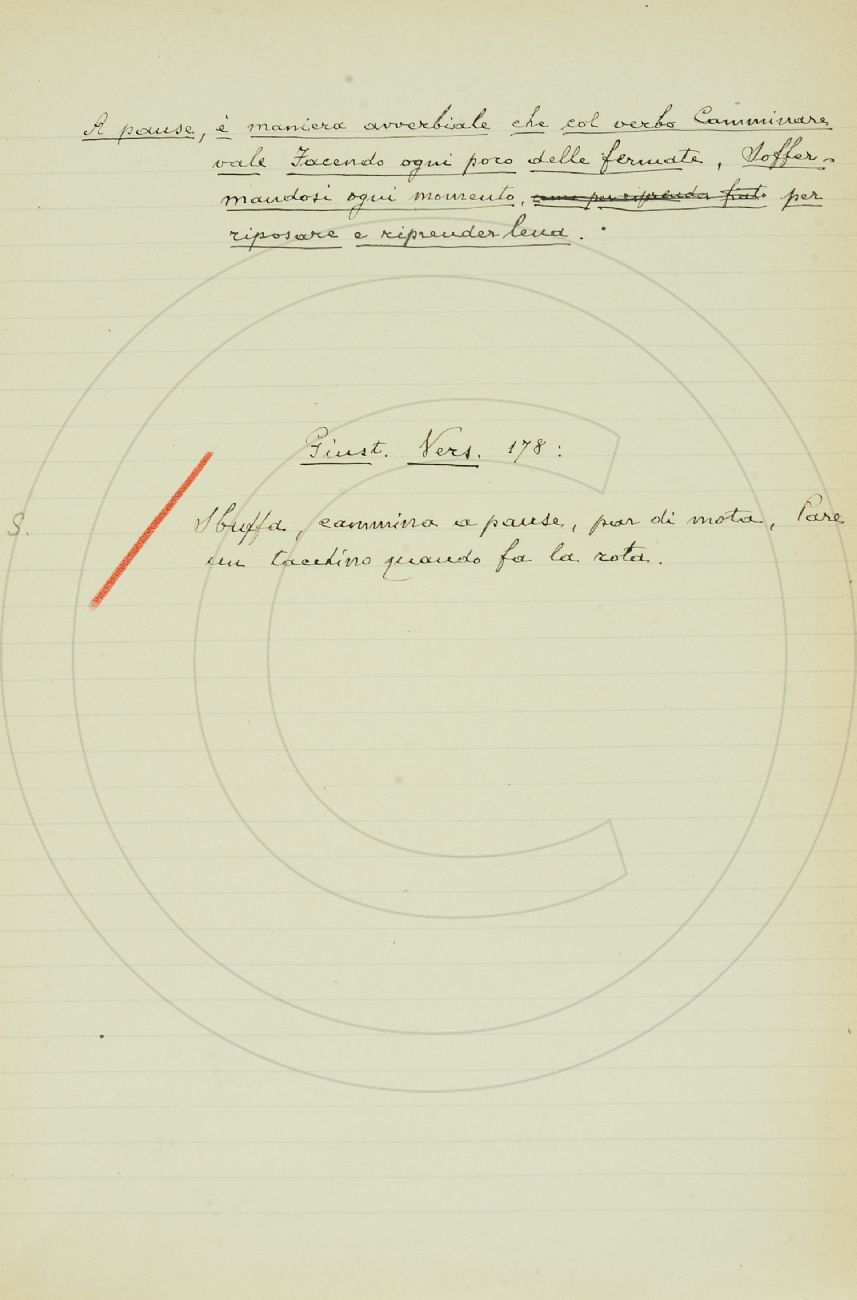 A pause, è maniera avverbiale che col verbo Camminare
vale Facendo ogni poco delle fermate, Soffer-
mandosi ogni momento, come per riprender fiato per
riposare e riprender lena.
Giust. Vers. 178:
S.
Sbuffa, cammina a pause, par di mota, Pare
un tacchino quando fa la rota.